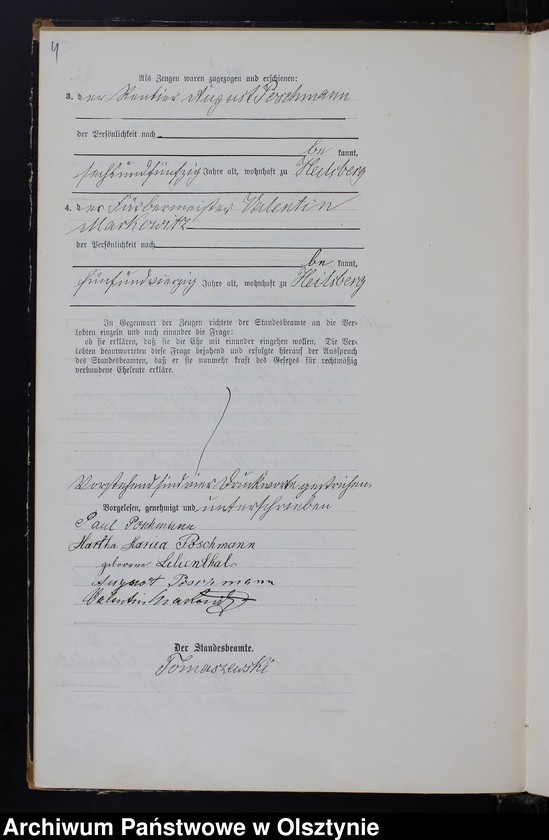 4
Als Zeugen waren zugezogen und erschienen:
3. der Rentier August Poschmann
der Persönlichkeit nach
be kannt,
sechsundfünfzig Jahre alt, wohnhaft zu Heilsberg
4. der Färbermeister Valentin
Markowitz
der Persönlichkeit nach
be kannt,
fünfundvierzig Jahre alt, wohnhaft zu Heilsberg
In Gegenwart der Zeugen richtete der Standesbeamte an die Ver-
lobten einzeln und nach einander die Frage:
ob sie erklären, daß sie die Ehe mit einander eingehen wollen. Die Ver-
lobten beantworteten diese Frage bejahend und erfolgte hierauf der Ausspruch
des Standesbeamten, daß er sie nunmehr kraft des Gesetzes für rechtmäßig
verbundene Eheleute erkläre.
Vorstehend sind vier Druckworte gestrichen.
Vorgelesen, genehmigt und unterschrieben
Paul Poschmann
Martha Maria Poschmann
geborene Lilienthal
August Poschmann
Valentin Markowitz
Der Standesbeamte.
Tomaszewski
Archiwum Państwowe w Olsztynie